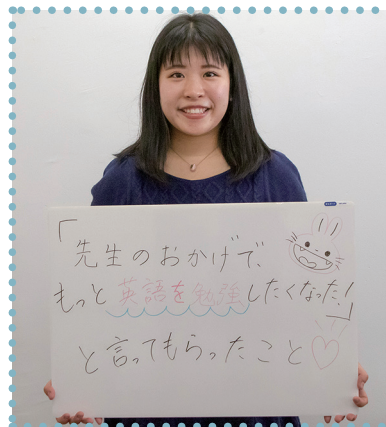 「先生のおかげで、
もっと英語を勉強したくなった!」
と言ってもらったこと♡